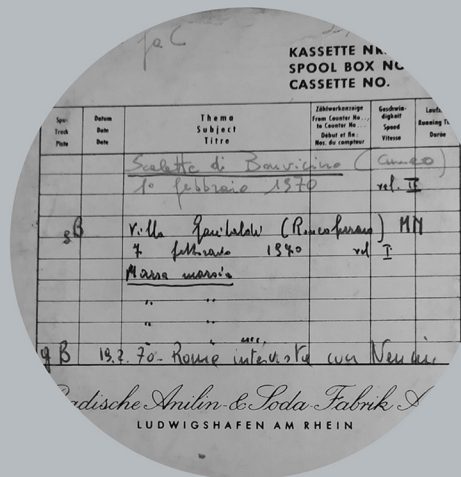 KASSETTE NR.
SPOOL BOX NO
CASSETTE NO.
Spur Track Piste
Datum Date Date
Thema Subject Titre
Zählwerkanzeige From Counter No... to Counter No... Début et fin: Nos. du compteur
Geschwindigkeit Speed Vitesse
Running Durée
Scaletta di Bonvicino (Cuneo)
1º febbraio 1970 vel. II
B Villa Garibaldi (Roncoferraro) MN
7 febbraio 1970 vel I
Massa marsia
" "
" "
" "
B 19.2.70 - Roma intervista con
Badische Anilin- & Soda-Fabrik A
LUDWIGSHAFEN AM RHEIN